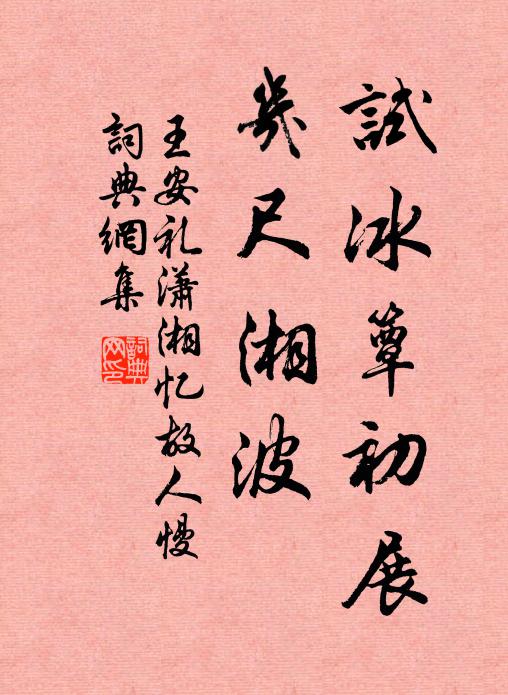 試冰簟初展
幾尺湘波
王安礼瀟湘忆故人慢
詞典網集
詞典网印